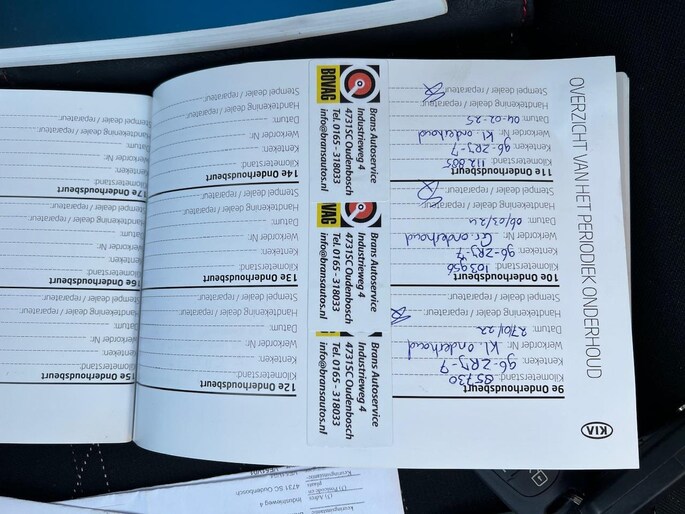 OVERZICHT VAN HET PERIODIEK ONDERHOUD
KIA
9e Onderhoudsbeurt
Kilometerstand: 85730
Kenteken: 96-ZRJ-7
Werkorder Nr: Kl. onderhoud
Datum: 27/01/22
Handtekening dealer / reparateur:
Stempel dealer / reparateur:
10e Onderhoudsbeurt
Kilometerstand: 103956
Kenteken: 96-ZRJ-7
Werkorder Nr: Gr. onderhoud
Datum: 06/03/24
Handtekening dealer / reparateur:
Stempel dealer / reparateur:
11e Onderhoudsbeurt
Kilometerstand: 112885
Kenteken: 96-ZRJ-7
Werkorder Nr: Kl. onderhoud
Datum: 04-02-25
Handtekening dealer / reparateur:
Stempel dealer / reparateur:
Brans Autoservice
Industrieweg 4
4731SC Oudenbosch
Tel. 0165 - 318033
info@bransautos.nl
VAG
Brans Autoservice
Industrieweg 4
4731SC Oudenbosch
Tel. 0165 - 318033
info@bransautos.nl
BOVAG
Brans Autoservice
Industrieweg 4
4731SC Oudenbosch
Tel. 0165 - 318033
info@bransautos.nl
12e Onderhoudsbeurt
Kilometerstand:
Kenteken:
Werkorder Nr:
Datum:
Handtekening dealer / reparateur:
Stempel dealer / reparateur:
13e Onderhoudsbeurt
Kilometerstand:
Kenteken:
Werkorder Nr:
Datum:
Handtekening dealer / reparateur:
Stempel dealer / reparateur:
14e Onderhoudsbeurt
Kilometerstand:
Kenteken:
Werkorder Nr:
Datum:
Handtekening dealer / reparateur:
Stempel dealer / reparateur:
15e Onderhoudsbeurt
Kilometerstand:
Kenteken:
Werkorder Nr:
Datum:
Handtekening dealer / reparateur:
Stempel dealer / reparateur:
16e Onderhoudsbeurt
Kilometerstand:
Kenteken:
Werkorder Nr:
Datum:
Handtekening dealer / reparateur:
Stempel dealer / reparateur:
17e Onderhoudsbeurt
Kilometerstand:
Kenteken:
Werkorder Nr:
Datum:
Handtekening dealer / reparateur:
Stempel dealer / reparateur:
Industrieweg 4
4731 SC Oudenbosch